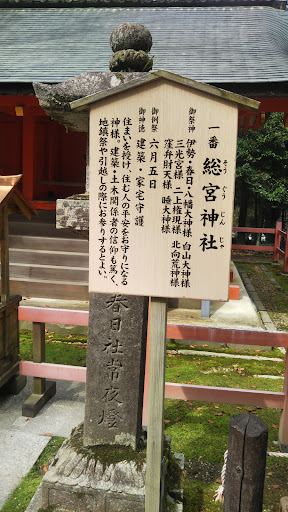 一番 総宮神社
そうぐうじんじゃ
御祭神
伊勢・春日・八幡大神様 白山大神様
三光宮様 二上権現様 北向荒神様
窪弁財天様 睡大神様
御例祭 六月五日
御神徳 建築・家宅守護
住まいを授け、住む人の平安をお守りになる
神様。建築・土木関係者の信仰も篤く、
地鎮祭や引越しの際にお参りするとよい。
春日社常夜燈